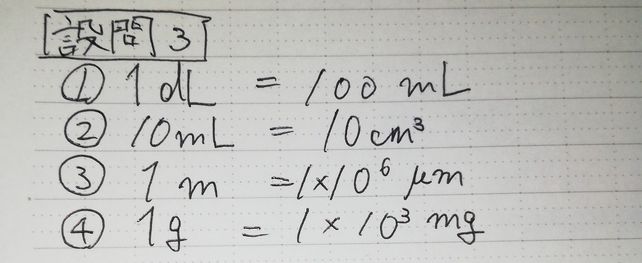 設問3
① 1dL = 100 mL
② 10mL = 10cm³
③ 1m = 1×10⁶ μm
④ 1g = 1×10³ mg